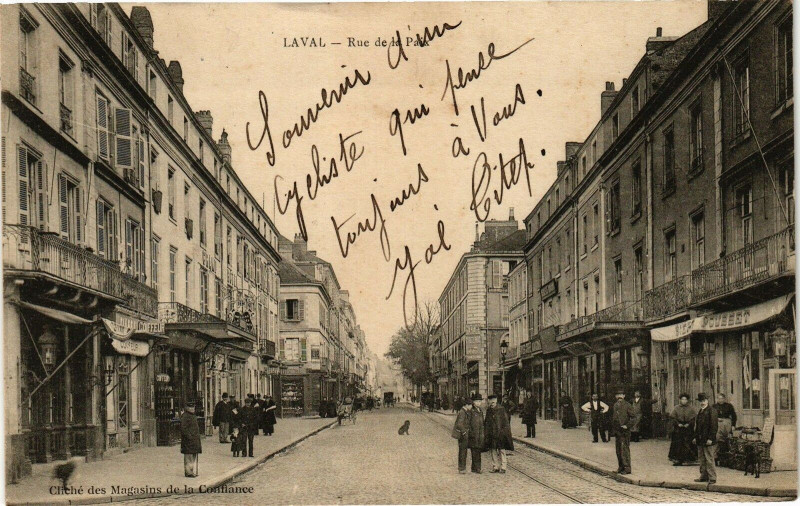 LAVAL — Rue de la Paix
Souvenir d'un
cycliste qui pense
toujours à Vous.
Cliché des Magasins de la Confiance